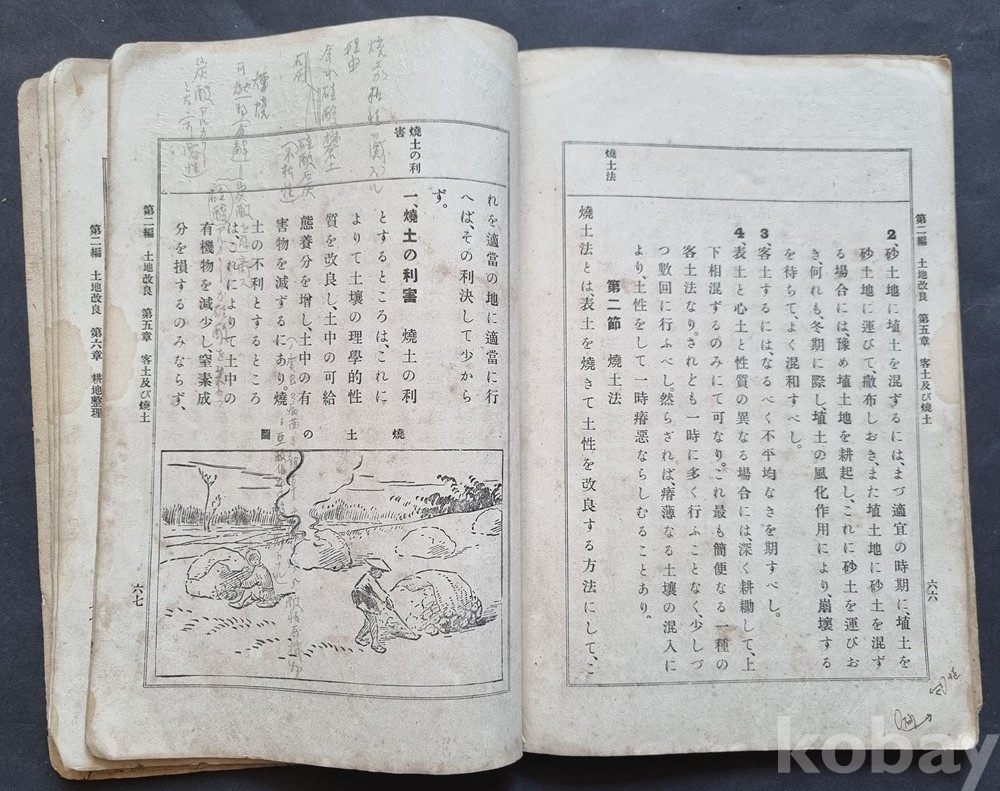 第二編　土地改良　第五章　客土及び燒土
六六
2、砂土地に埴土を混ずるには、まづ適宜の時期に、埴土を
砂土地に運びて、撒布しおき、また埴土地に砂土を混ず
る場合には豫め埴土地を耕起し、これに砂土を運びお
き、何れも、冬期に際し、埴土の風化作用により、崩壞する
を待ちて、よく混和すべし。
3、客土するには、なるべく不平均なきを期すべし。
4、表土と心土と性質の異なる場合には、深く耕鋤して、上
下相混ずるのみにて可なり。これ最も簡便なる一種の
客土法なり。されども一時に多く行ふことなく、少しづ
つ數回に行ふべし。然らざれば、瘠薄なる土壤の混入に
より、土性をして一時瘠惡ならしむることあり。
第二節　燒土法
燒土法
燒土法とは、表土を燒きて土性を改良する方法にして、こ
れを適當の地に適當に行
へば、その利決して少から
ず。
燒土の利
害
一、燒土の利害　燒土の利
とするところは、これに
よりて土壤の理學的性
質を良し、土中の可給
態養分を增し、土中の有
害物を減ずるにあり。燒
土の不利とするところ
は、これによりて土中の
有機物を減少し、窒素成
分を損するのみならず、
燒土の圖
第二編　土地改良　第五章　客土及び燒土
六七
第二編　土地改良　第六章　耕地整理
kobay